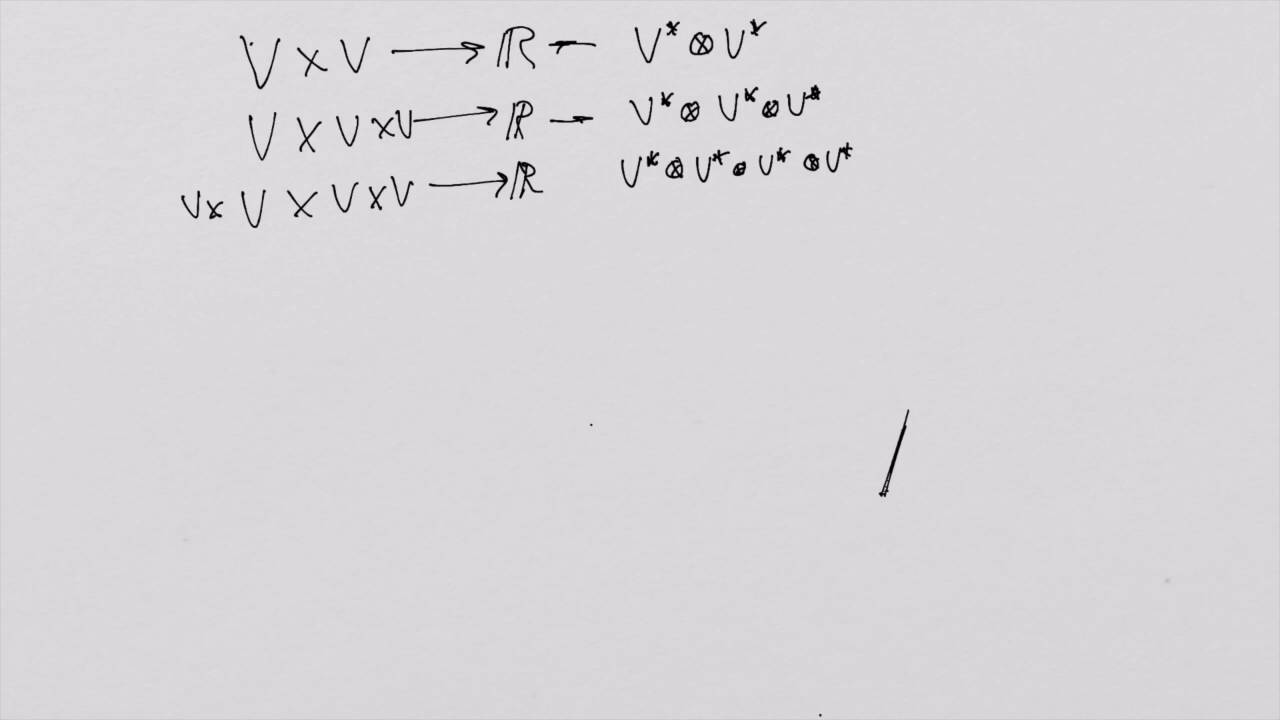 V × V ⟶ ℝ — V* ⊗ V*
V × V × V ⟶ ℝ — V* ⊗ V* ⊗ V*
V × V × V × V ⟶ ℝ V* ⊗ V* ⊗ V* ⊗ V*